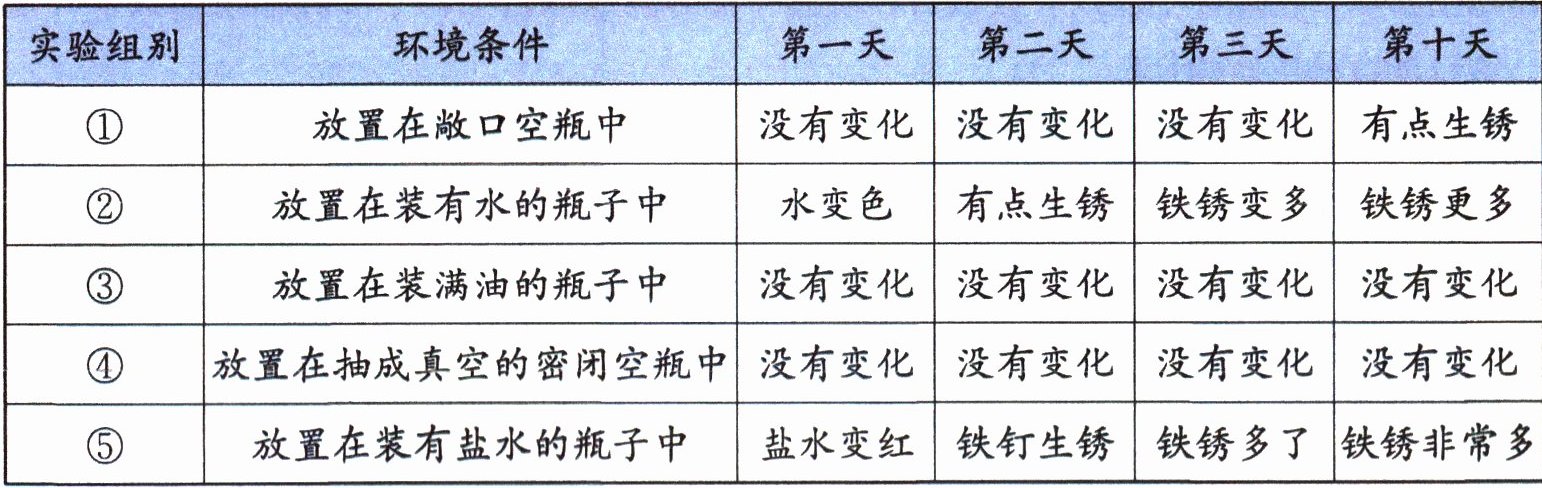 实验组别 环境条件 第一天 第二天 第三天 第十天
① 放置在敞口空瓶中 没有变化 没有变化 没有变化 有点生锈
② 放置在装有水的瓶子中 水变色 有点生锈 铁锈变多 铁锈更多
③ 放置在装满油的瓶子中 没有变化 没有变化 没有变化 没有变化
④ 放置在抽成真空的密闭空瓶中 没有变化 没有变化 没有变化 没有变化
⑤ 放置在装有盐水的瓶子中 盐水变红 铁钉生锈 铁锈多了 铁锈非常多